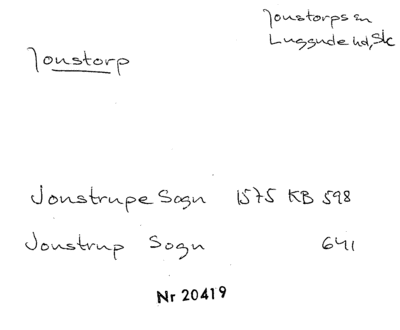 Jonstorps sn
Luggude hd, Sk
Jonstorp
Jonstrupe Sogn 1575 KB 598
Jonstrup Sogn 641
Nr 20419